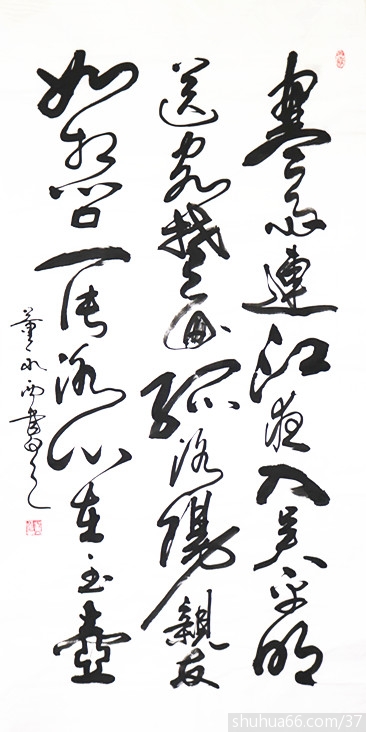 寒雨連江夜入吳平明
送客楚山孤洛陽親友
如相問一片冰心在玉壺
董永西書
shuhua66.com/37